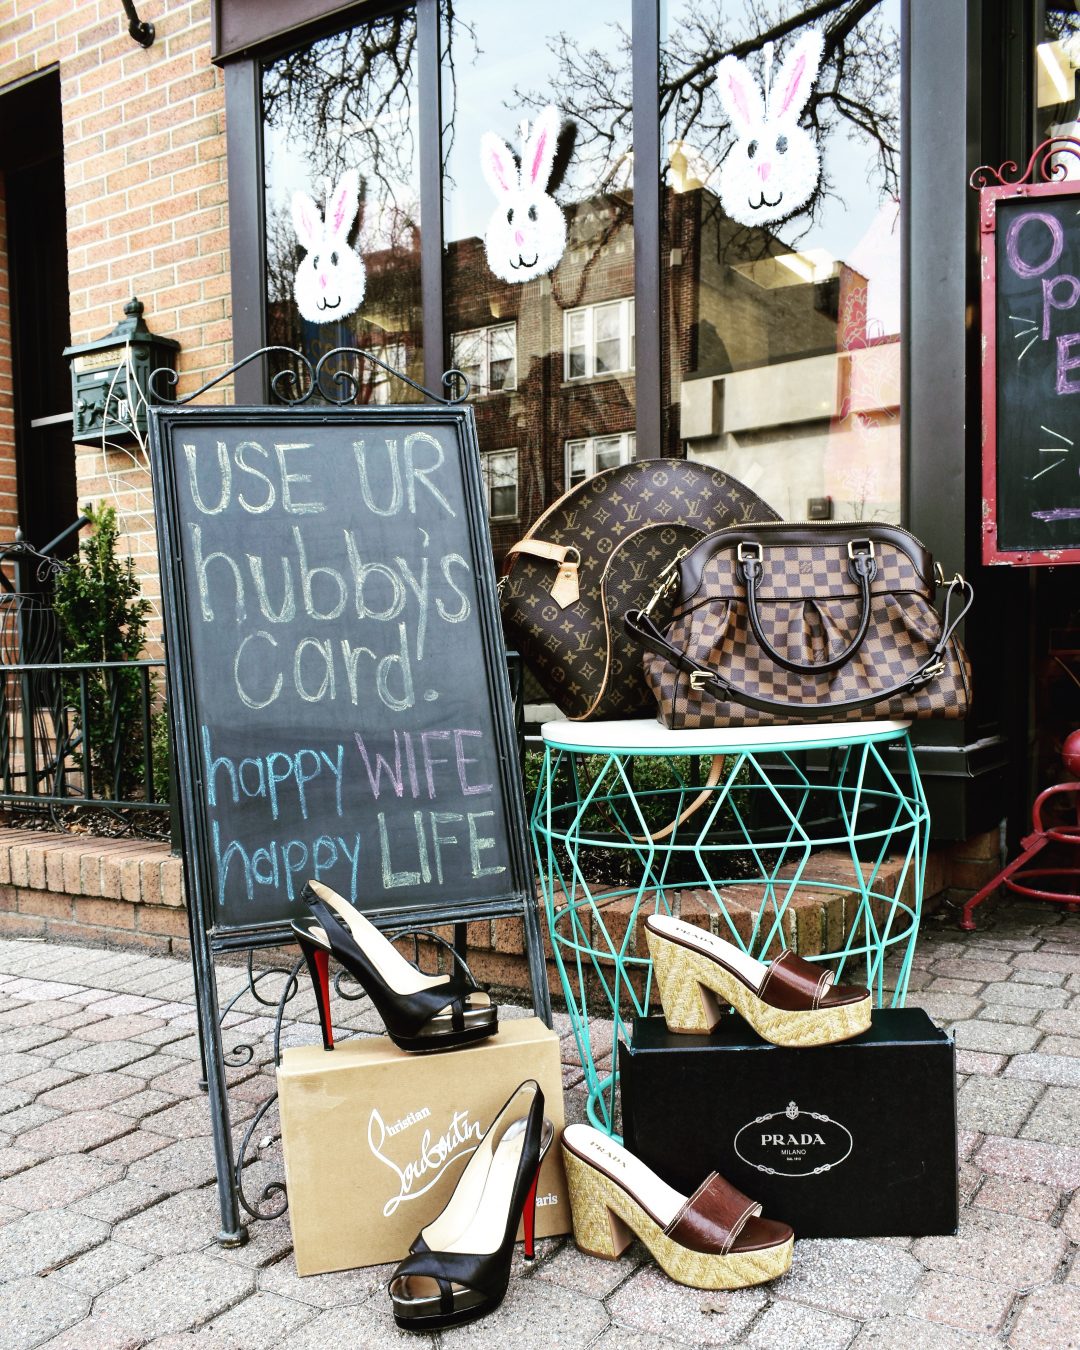 USE UR
hubby's
card!
happy WIFE
happy LIFE
OpE
PRADA
Christian
Louboutin
Paris
PRADA
MILANO
DAL 1913
PRADA